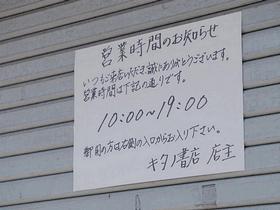 営業時間のお知らせ
いつもご来店いただき、誠にありがとうございます。
営業時間は下記の通りです。
10:00～19:00
御用の方は右側の入口からお入り下さい。
キタノ書店 店主